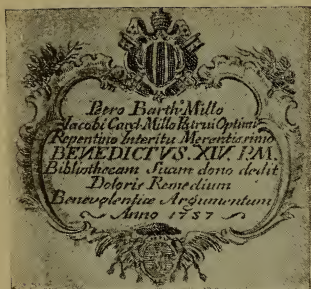 Petro Barth. Millo
Iacobi Card. Millo Patrui Optimi
Repentino Interitu Mœrentissimo
BENEDICTVS. XIV. P.M.
Bibliothecam Suam dono dedit
Doloris Remedium
Benevolentiæ Argumentum
Anno 1757